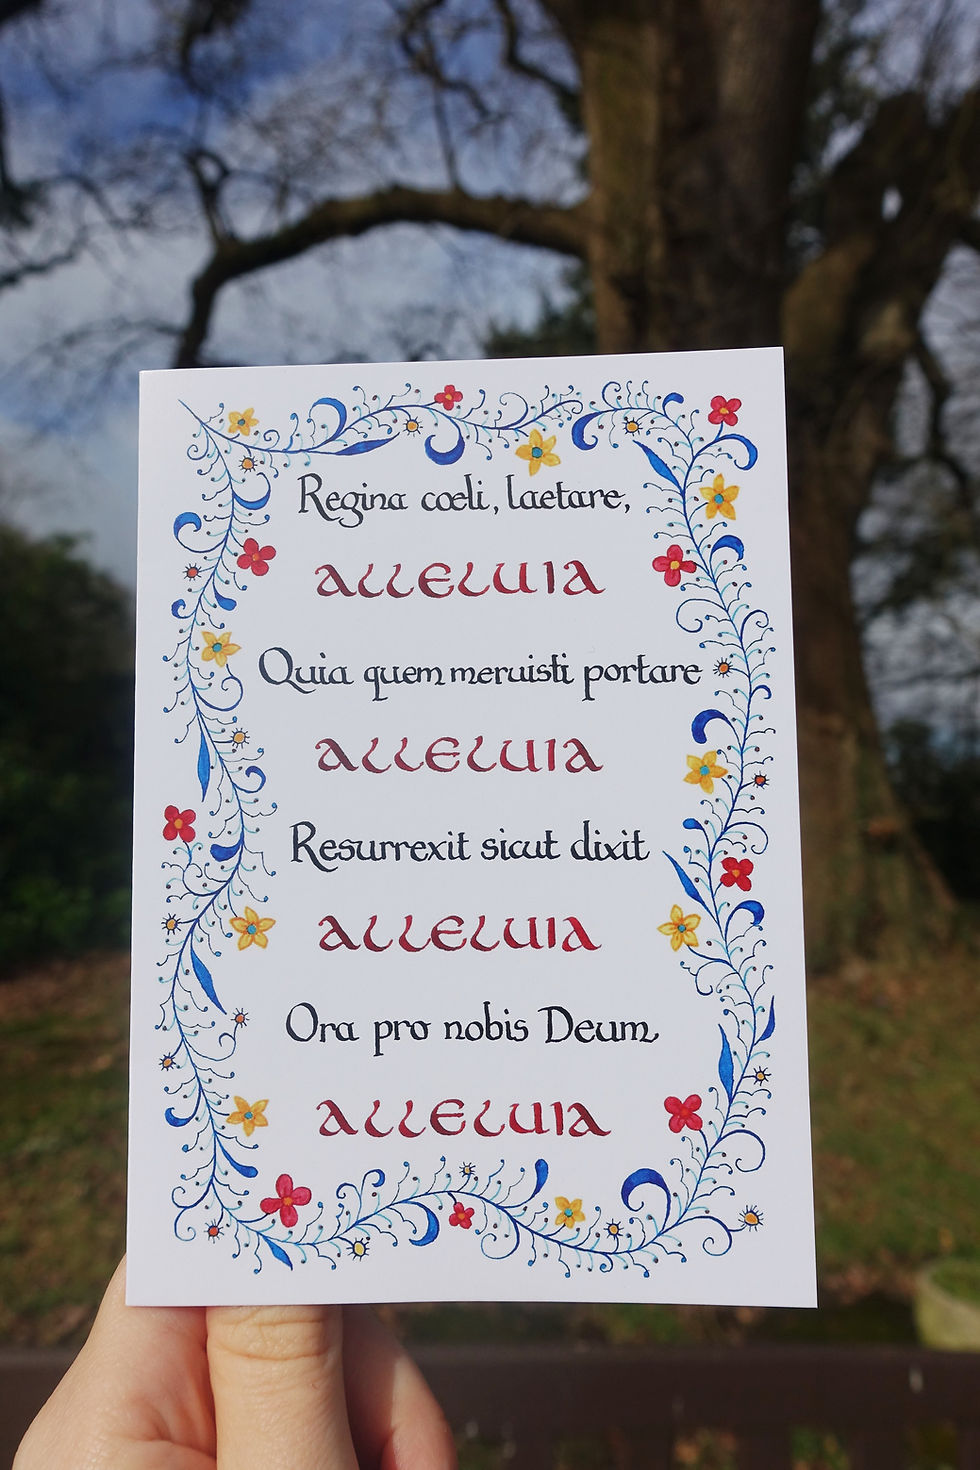 Regina coeli, laetare,
ALLELUIA
Quia quem meruisti portare
ALLELUIA
Resurrexit sicut dixit
ALLELUIA
Ora pro nobis Deum
ALLELUIA